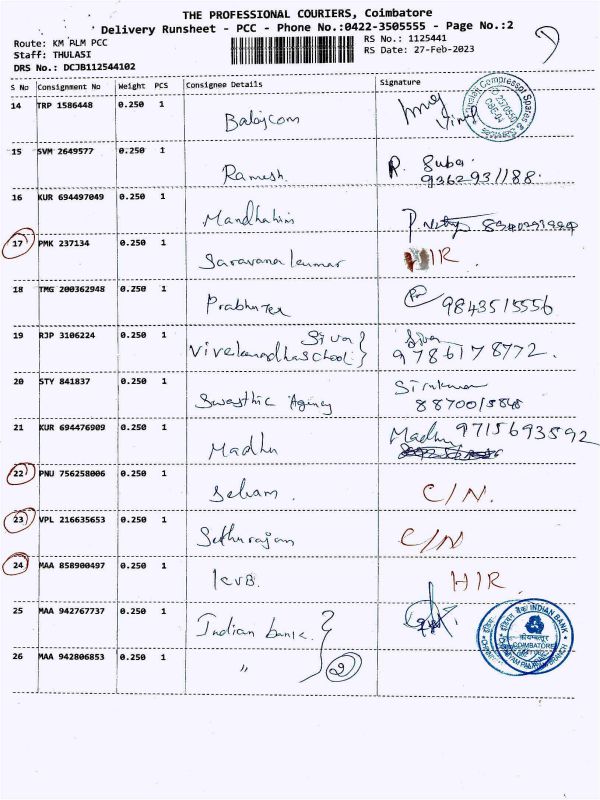 THE PROFESSIONAL COURIERS, Coimbatore
Delivery Runsheet - PCC - Phone No.:0422-3505555 - Page No.:2
Route: KM PLM PCC
RS No.: 1125441
Staff: THULASI
RS Date: 27-Feb-2023
DRS No.: DCJB112544102
S No Consignment No Weight PCS Consignee Details Signature
14 TRP 1586448 0.250 1 Balajcom
15 SVM 2649577 0.250 1 Ramesh R. Suba
9362931188.
16 KUR 694497049 0.250 1
17 PMK 237134 0.250 1 Saravana kumar HIR.
18 TMG 200362948 0.250 1 Prabhu Tex 9843515556
19 RJP 3106224 0.250 1 Siva Siva
Vivekanodha School } 9786178772.
20 STY 841837 0.250 1 Swasthic Agency
8870015848
21 KUR 694476909 0.250 1 Madhu Madhu 9715693592
22 PNU 756258006 0.250 1 C/N.
23 VPL 216635653 0.250 1 Sethurajan C/N
24 MAA 858900497 0.250 1 KVB. HIR.
25 MAA 942767737 0.250 1 Indian bank.
26 MAA 942806853 0.250 1 " } 2
INDIAN BANK
COIMBATORE